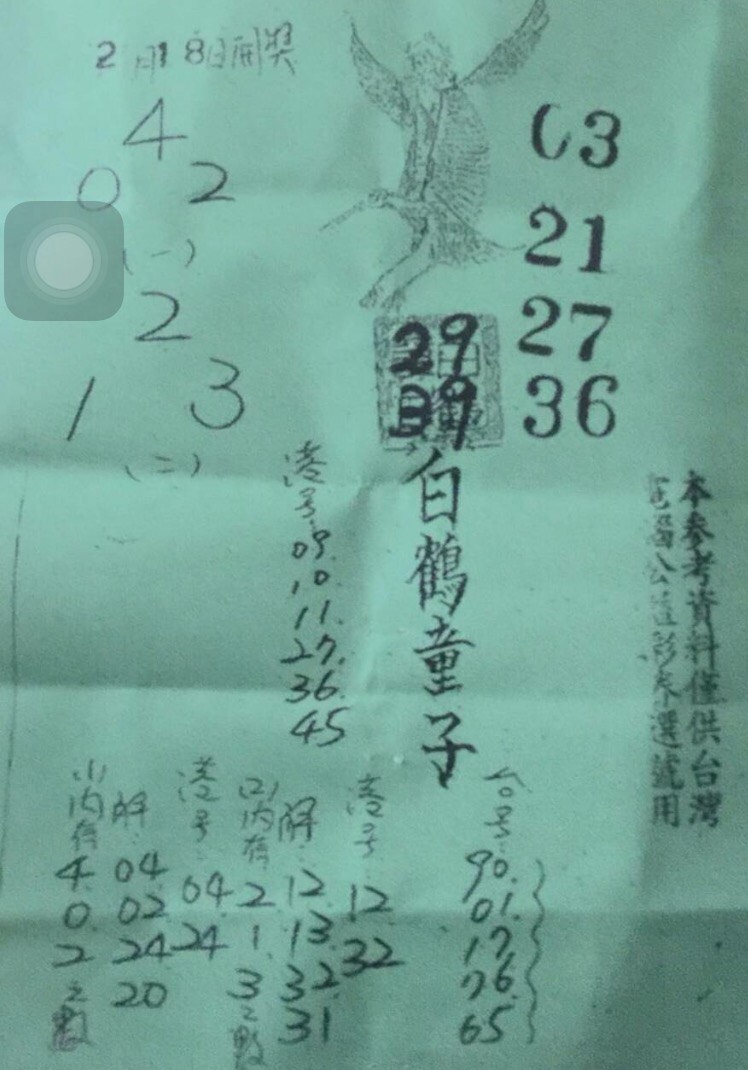 2月18日開獎
4
0 2
(一)
2
1 3
(二)
03
21
27
36
29
39
白鶴童子
港号
09.
10.
11.
27.
36.
45
本參考資料僅供台灣
電腦公益彩券選號用
(1)內有
4
0
2
之數
解
04
02
24
20
港号
04
24
(2)內有
2
1
3
之數
解
12
13
32
31
港号
12
32
台号
90.
01.
17.
76.
65